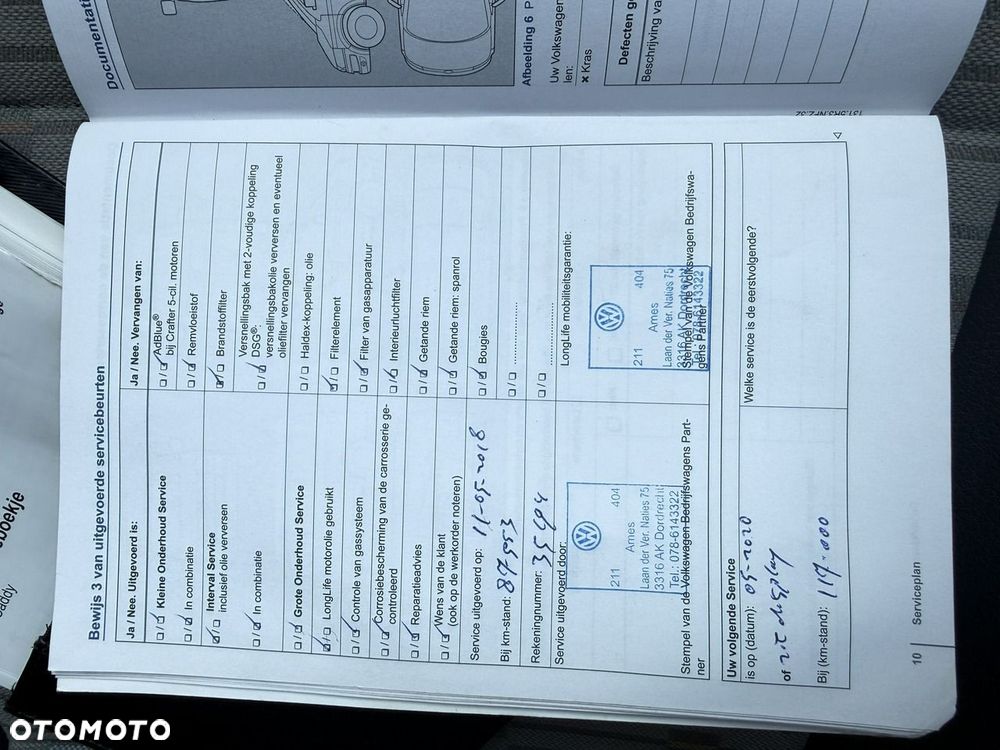 Documentat
Afbeelding 6 P
Uw Volkswagen
len:
× Kras
Defecten ge
Beschrijving va
131.5R3.NFZ.32
Bewijs 3 van uitgevoerde servicebeurten
Ja / Nee. Uitgevoerd is:
Kleine Onderhoud Service
In combinatie
Interval Service
inclusief olie verversen
In combinatie
Grote Onderhoud Service
LongLife motorolie gebruikt
Controle van gassysteem
Corrosiebescherming van de carrosserie ge-
controleerd
Reparatieadvies
Wens van de klant
(ook op de werkorder noteren)
Service uitgevoerd op: 11-05-2018
Bij km-stand: 87953
Rekeningnummer:
Service uitgevoerd door:
211 Ames 404
Laan der Ver. Naties 75
3316 AK Dordrecht
Tel.: 078-6143322
Stempel van de Volkswagen Bedrijfswagens Part-
ner
Ja / Nee. Vervangen van:
AdBlue®
bij Crafter 5-cil. motoren
Remvloeistof
Brandstoffilter
Versnellingsbak met 2-voudige koppeling
DSG®:
versnellingsbakolie verversen en eventueel
oliefilter vervangen
Haldex-koppeling: olie
Filterelement
Filter van gasapparatuur
Interieurluchtfilter
Getande riem
Getande riem: spanrol
Bougies
LongLife mobiliteitsgarantie:
211 Ames 404
Laan der Ver. Naties 75
3316 AK Dordrecht
Tel.: 078-6143322
Stempel van de Volkswagen Bedrijfswa-
gens Partner
Uw volgende Service
is op (datum): 05-2020
of zie display
Bij (km-stand): 117.000
Welke service is de eerstvolgende?
10 Serviceplan
boekje
addy
OTOMOTO